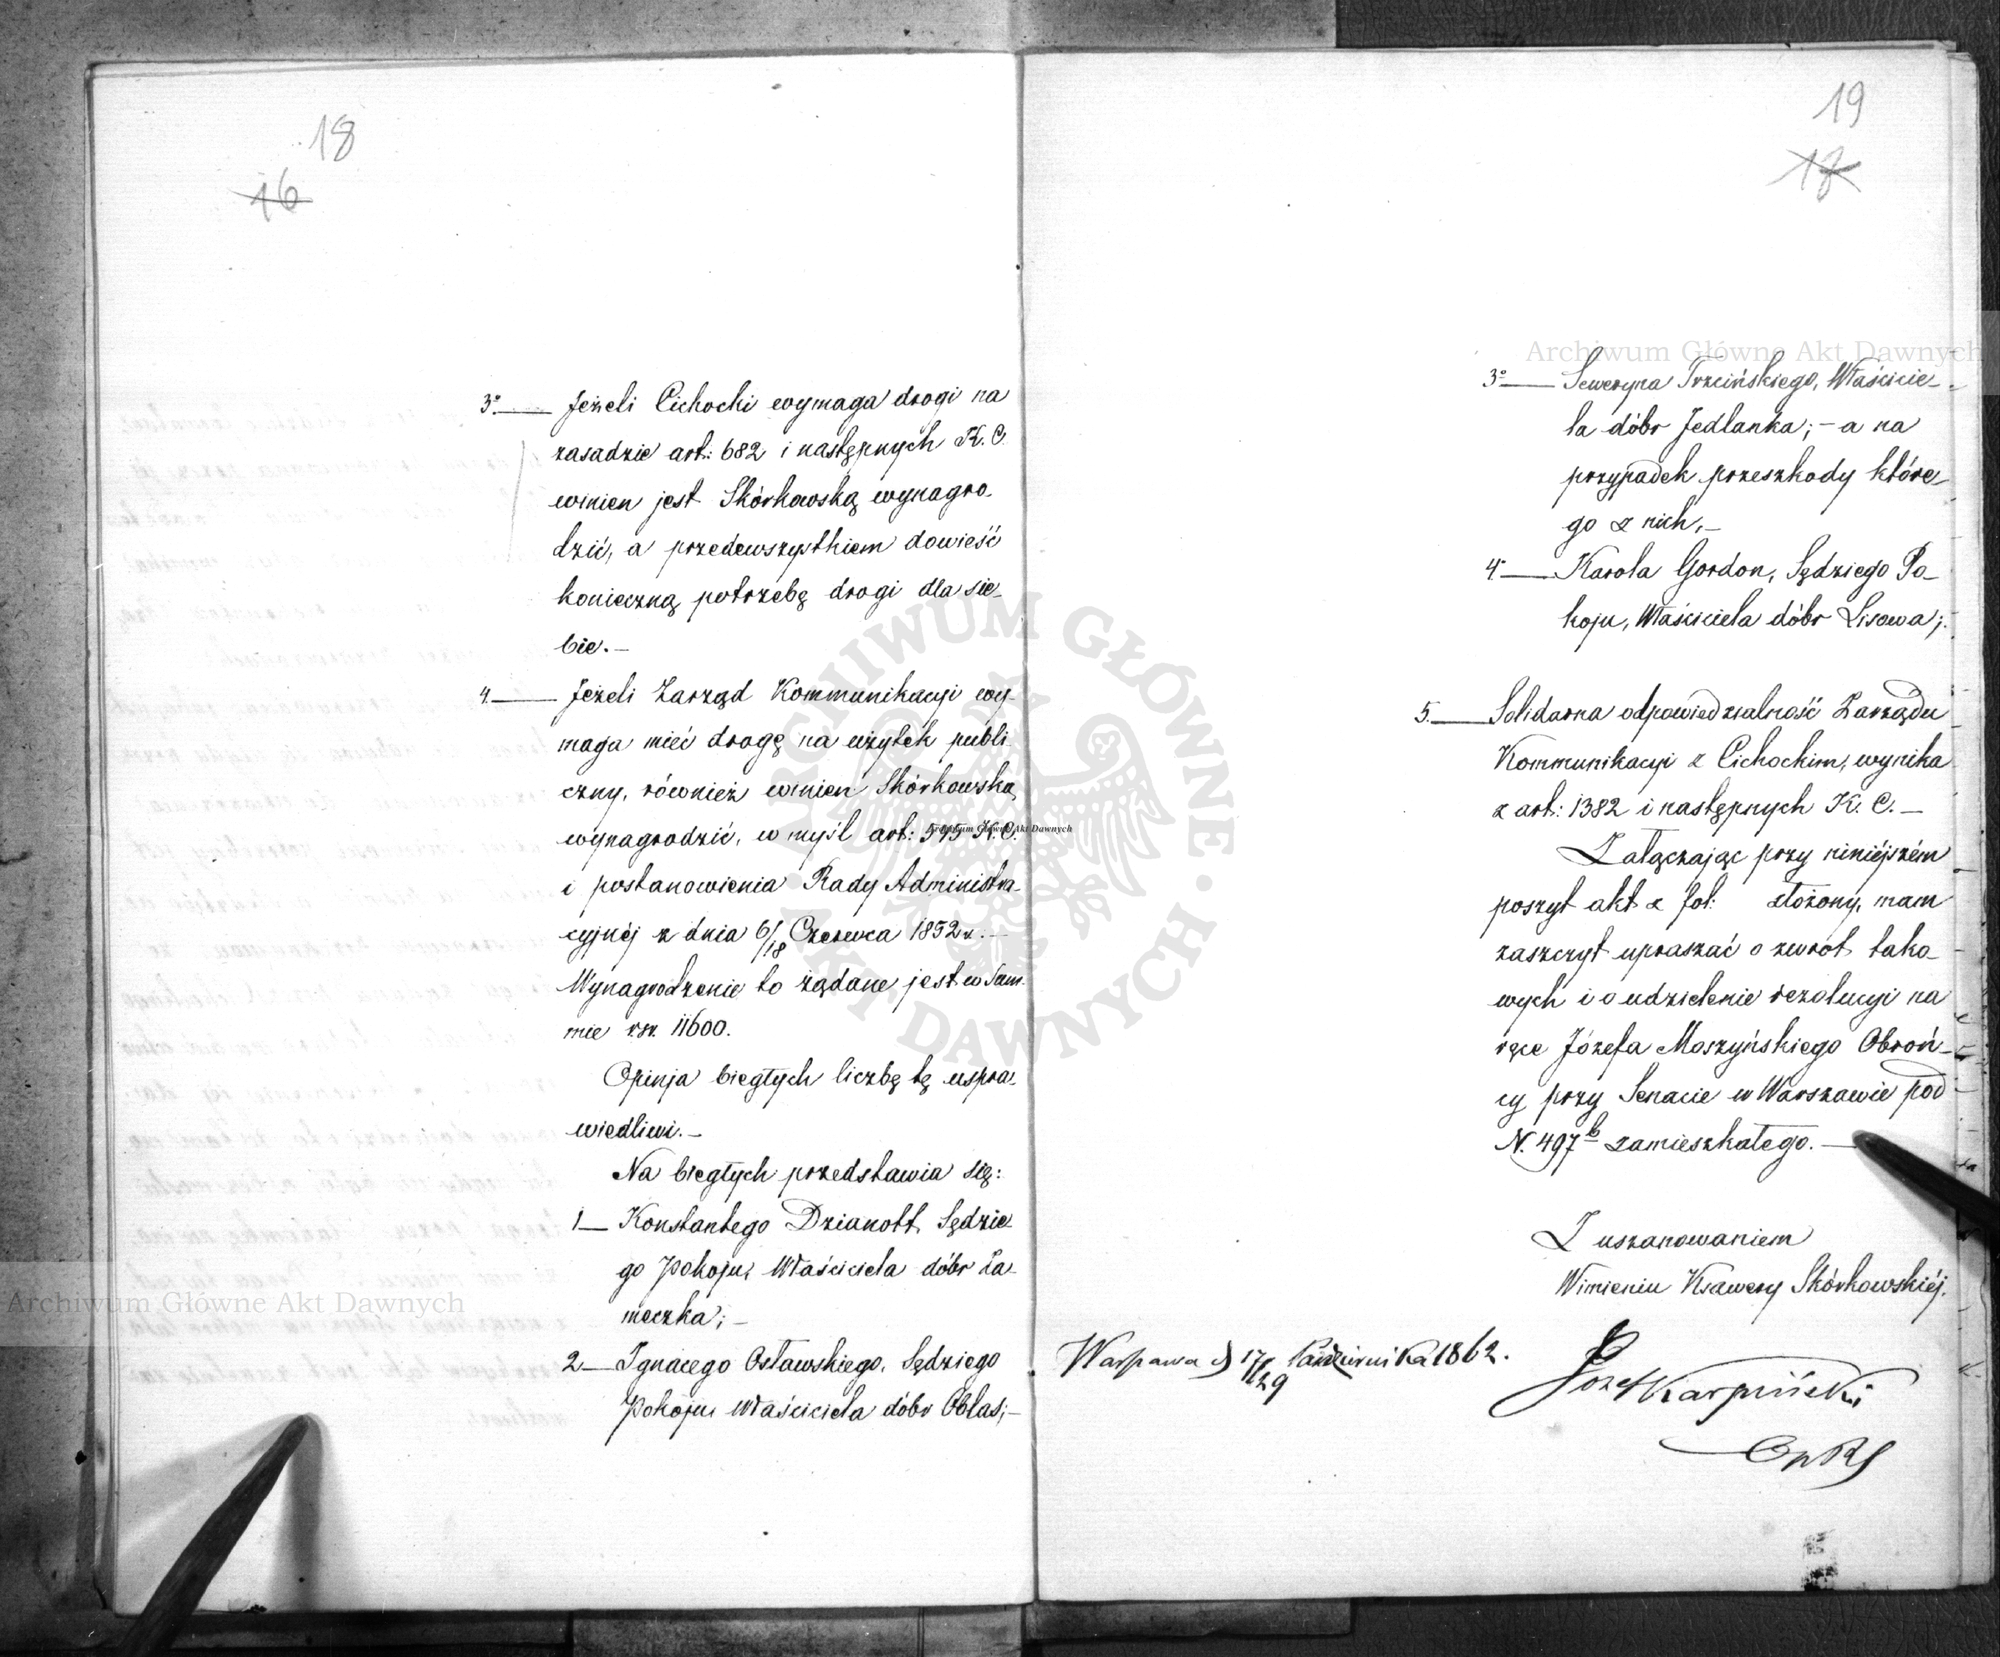 18
16
3o Jeżeli Cichocki wymaga drogi na
zasadzie art: 682 i następnych K. C.
winien jest Skórkowską wynagro-
dzić, a przedewszystkiem dowieść
konieczną potrzebę drogi dla sie-
bie. —
4. Jeżeli Zarząd Kommunikacyi wy-
maga mieć drogę na użytek publi-
czny, również winien Skórkowską
wynagrodzić, w myśl art: 545 K. C.
i postanowienia Rady Administra-
cyjnéj z dnia 6/18 Czerwca 1852 r. —
Wynagrodzenie to żądane jest w Sum-
mie rsr. 11600.
Opinja biegłych liczbę tę uspra-
wiedliwi. —
Na biegłych przedstawia się:
1 — Konstantego Dzianott, Sędzie-
go Pokoju, Właściciela dóbr Za-
meczka; —
2 — Ignacego Osławskiego, Sędziego
Pokoju, Właściciela dóbr Oblas; —
19
17
3o Seweryna Trzcińskiego, Właścicie-
la dóbr Jedlanka; — a na
przypadek przeszkody które-
go z nich, —
4o Karola Gordon, Sędziego Po-
koju, Właściciela dóbr Lisowa;
5. Solidarna odpowiedzialność Zarządu
Kommunikacyi z Cichockim, wynika
z art: 1382 i następnych K. C. —
Załączając przy niniéjszém
poszyt akt z fol: złożony, mam
zaszczyt upraszać o zwrot tako-
wych i o udzielenie rezolucyi na
ręce Józefa Maszyńskiego Obroń-
cy przy Senacie w Warszawie pod
N. 497 b zamieszkałego. —
Z uszanowaniem
W imieniu Ksawery Skórkowskiéj.
Warszawa d 17/29 Października 1862.
Józef Karpiński
Archiwum Główne Akt Dawnych
Archiwum Główne Akt Dawnych
Archiwum Główne Akt Dawnych
ARCHIWUM GŁÓWNE AKT DAWNYCH